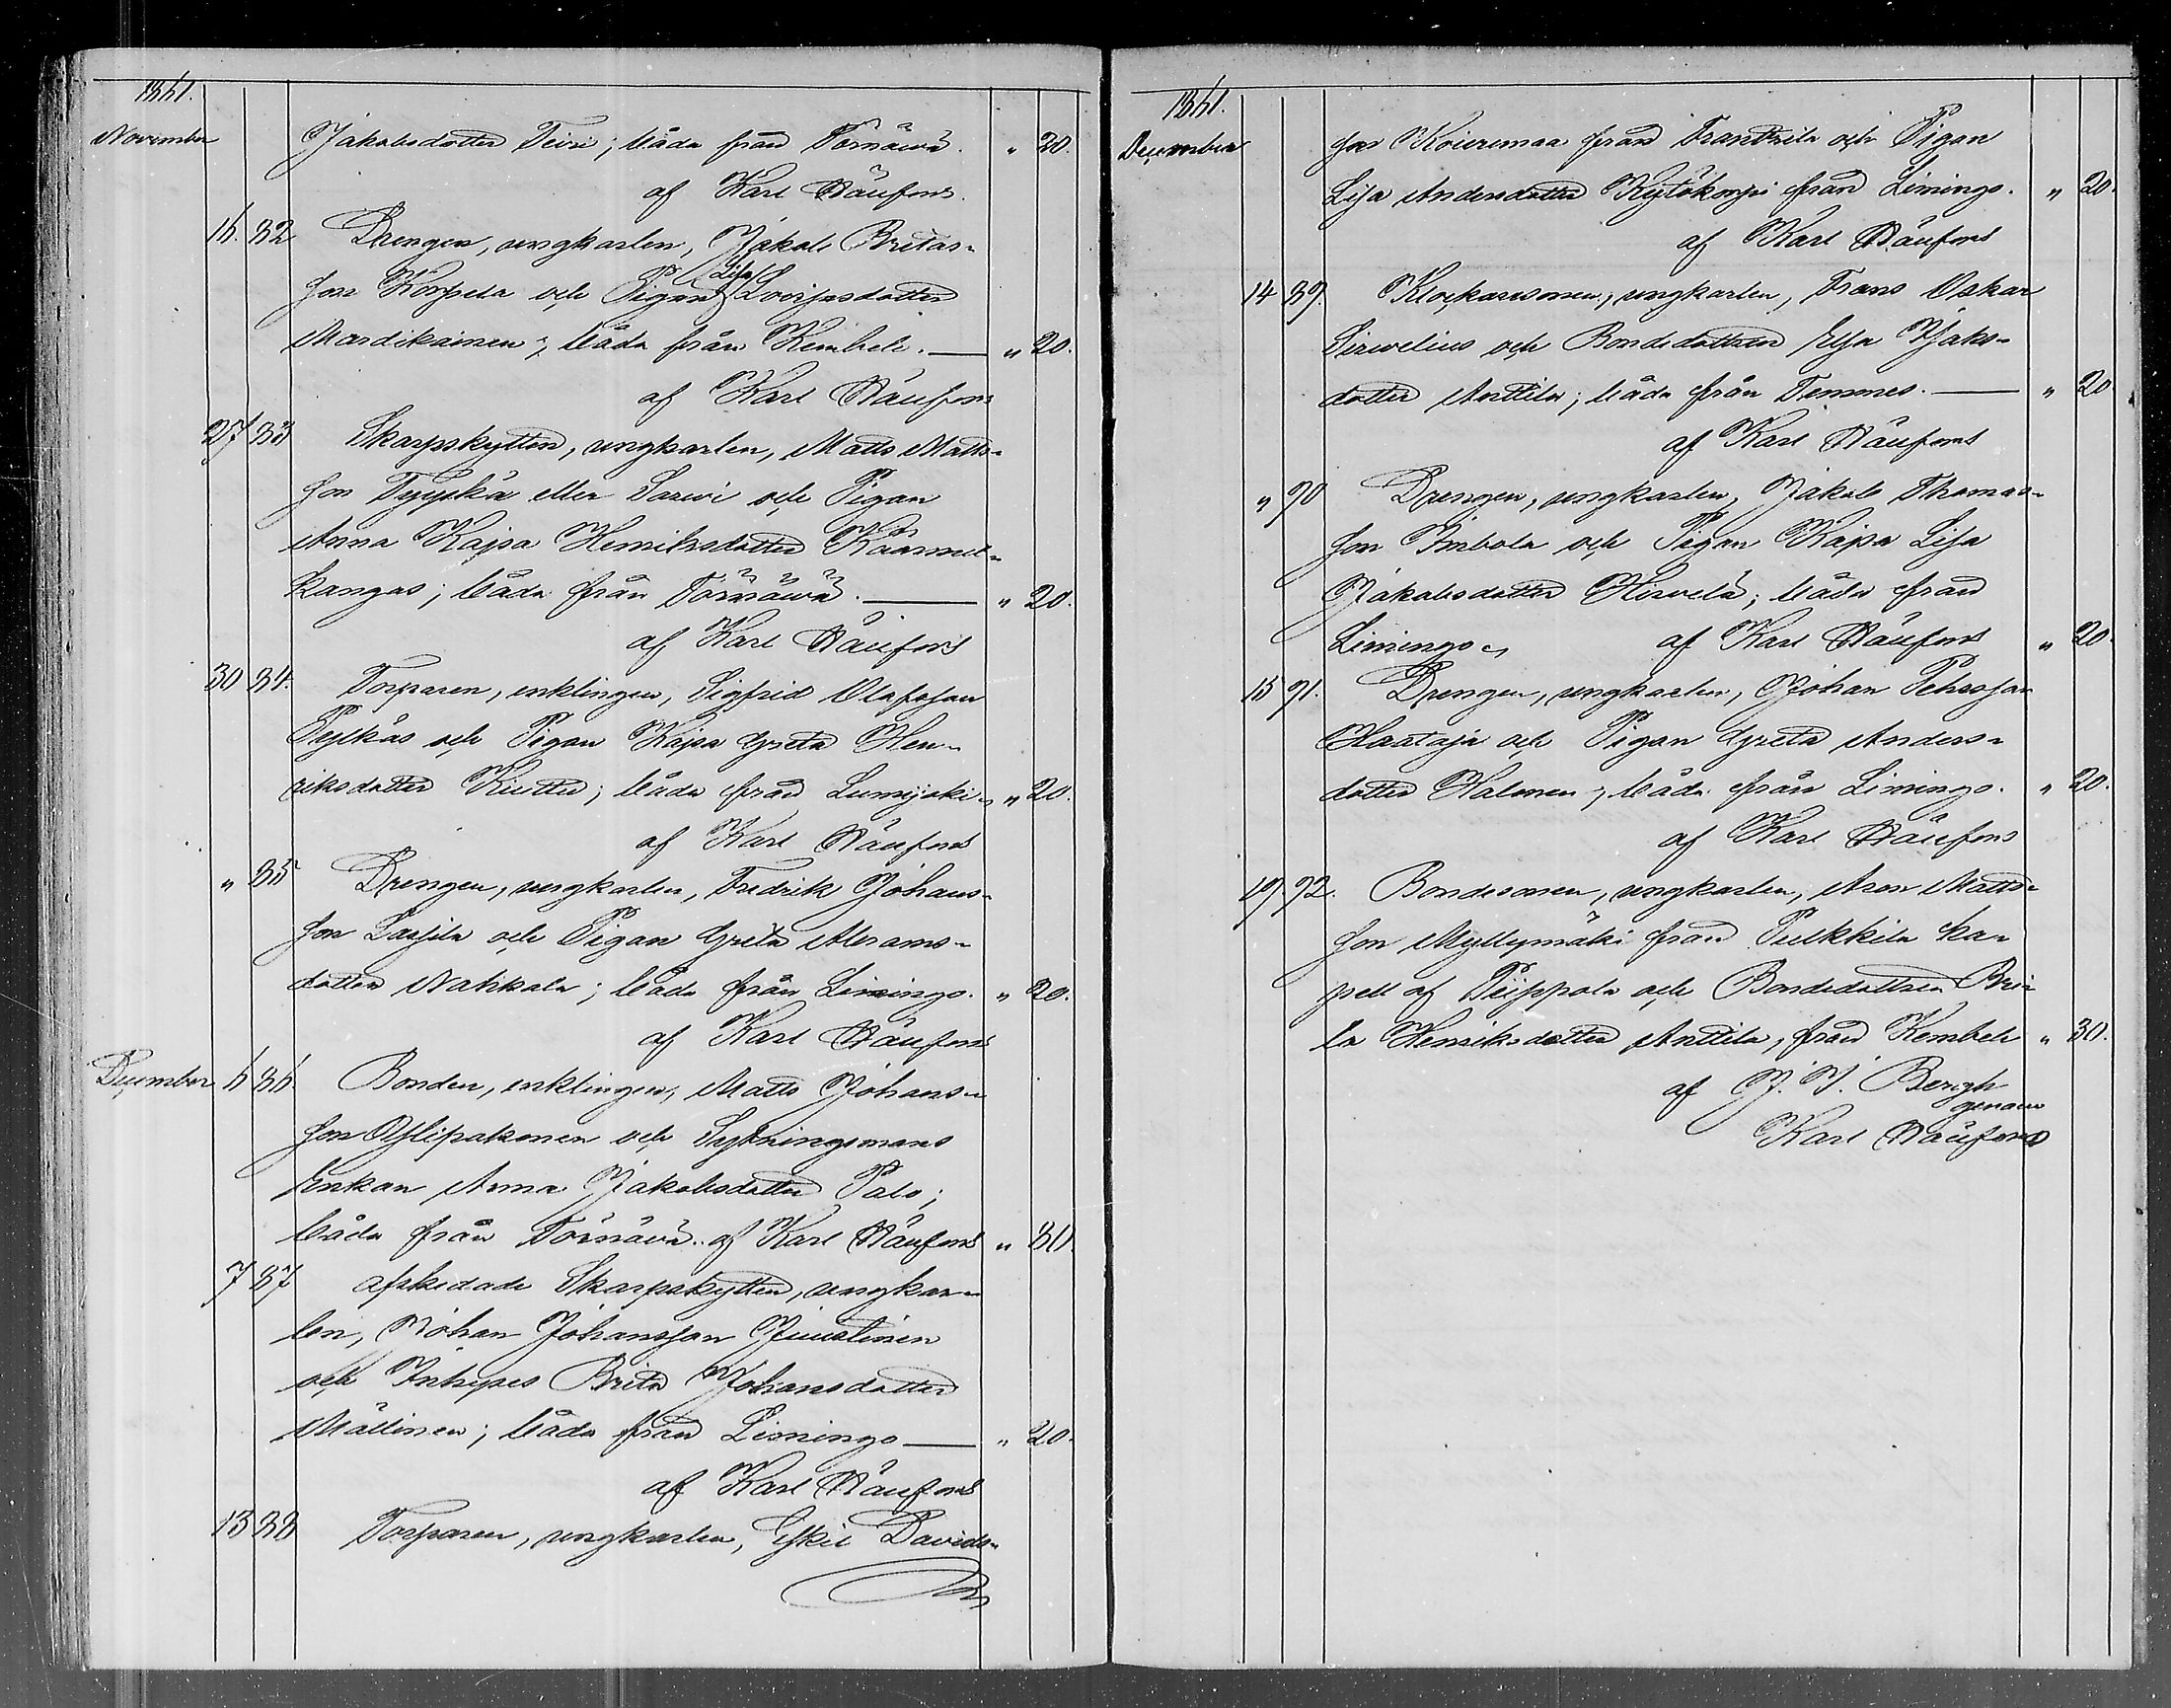 1861.
November Jakobsdotter Teiri; båda från Törnäwä. " 20.
af Karl Häufors.
16. 82 Drengen, ungkarlen, Jakob Britas-
son Korpela och Pigan Lisa Loviisasdotter
Mardikainen; båda från Kembele. — " 20.
af Karl Häufors
27 83 Skarpskytten, ungkarlen, Matts Matts-
son Tyyskä eller Sarwi och Pigan
Anna Kajsa Henriksdotter
kangas; båda från Törnäwä. — " 20.
af Karl Häufors
30 84. Torparen, enklingen, Sigfrid Olofsson
Pylkäs och Pigan Kajsa Greta Hen-
riksdotter Kiuttu; båda från Lumijoki " 20.
af Karl Häufors
" 85 Drengen, ungkarlen, Fredrik Johans-
son Lassila och Pigan Greta Abrams-
dotter Nahkala; båda från Limingo. " 20.
af Karl Häufors
December 6 86. Bonden, enklingen, Matts Johans-
son Ylipakonen och Sytningsmans
Enkan Anna Jakobsdotter Palo;
båda från Törnäwä. af Karl Häufors " 80
7 87 afskedade Skarpskytten, ungkar-
len, Johan Johansson Juustinen
och Inhyses Brita Johansdotter
Mällinen; båda från Limingo — " 20.
af Karl Häufors
13 88 Torparen, ungkarlen, Eskil Davids-
1861.
December son Koiremaa från Frantsila och Pigan
Lisa Andersdotter Kytökorpi från Limingo. " 20.
af Karl Häufors
14 89. Klockaresonen, ungkarlen, Frans Oskar
Sirwelius och Bondedottren Elsa Isaks-
dotter Anttila; båda från Temmes. — " 20
af Karl Häufors
" 90 Drengen, ungkarlen, Jakob Thomas-
son Imbola och Pigan Kajsa Lisa
Jakobsdotter Hirvelä; båda från
Limingo. af Karl Häufors " 20.
15 91. Drengen, ungkarlen, Johan Pehrsson
Haataja och Pigan Greta Anders-
dotter Halonen; båda från Limingo. " 20.
af Karl Häufors
19 92. Bondesonen, ungkarlen, Aron Matts-
son Myllymäki från Pulkkila ka-
pell af Piippola och Bondedottren Brii-
ta Henriksdotter Anttila, från Kembele " 30.
af J. J. Bergh
genom
Karl Häufors